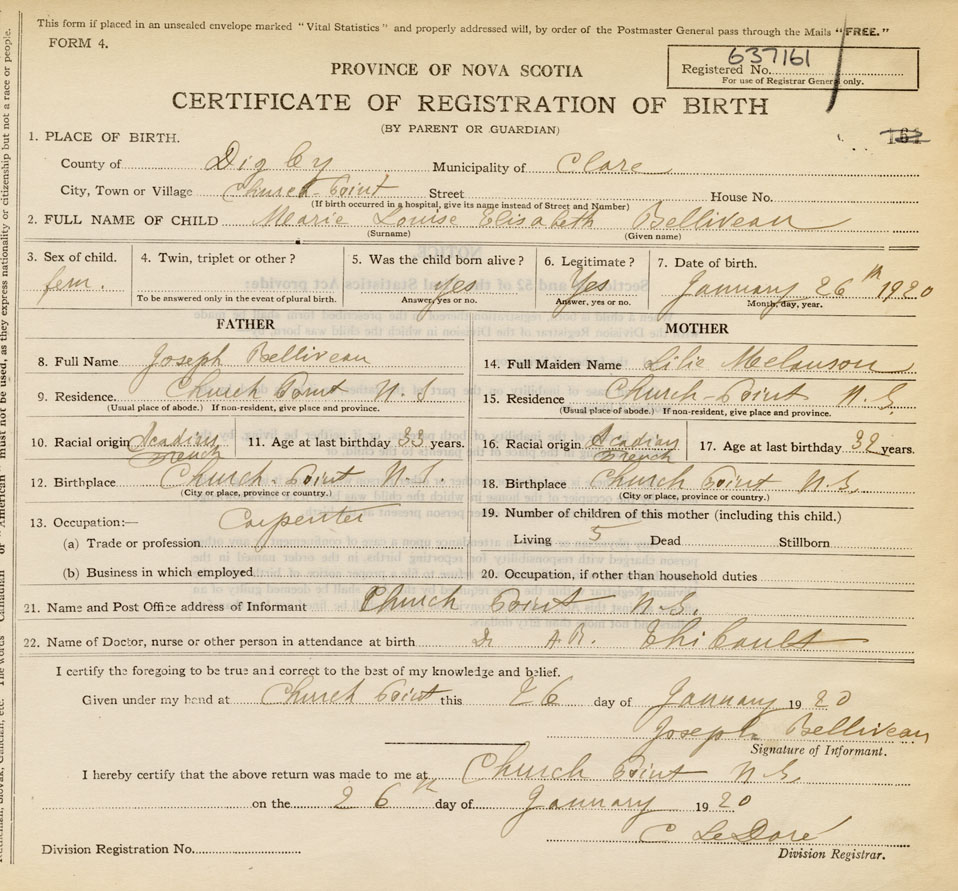 This form if placed in an unsealed envelope marked "Vital Statistics" and properly addressed will, by order of the Postmaster General pass through the Mails "FREE."
FORM 4.
637161
Registered No.
For use of Registrar General only.
PROVINCE OF NOVA SCOTIA
CERTIFICATE OF REGISTRATION OF BIRTH
(BY PARENT OR GUARDIAN)
1. PLACE OF BIRTH.
County of Digby Municipality of Clare
City, Town or Village Church Point Street House No.
(If birth occurred in a hospital, give its name instead of Street and Number)
2. FULL NAME OF CHILD Marie Louise Elisabeth Belliveau
(Surname) (Given name)
3. Sex of child. 4. Twin, triplet or other? 5. Was the child born alive? 6. Legitimate? 7. Date of birth.
fem. Yes Yes January 26th 1920
To be answered only in the event of plural birth. Answer, yes or no. Answer, yes or no. Month, day, year.
FATHER MOTHER
8. Full Name Joseph Belliveau 14. Full Maiden Name Lilie Melanson
9. Residence. Church Point N.S 15. Residence Church-Point N.S
(Usual place of abode.) If non-resident, give place and province. (Usual place of abode.) If non-resident, give place and province.
10. Racial origin Acadian French 11. Age at last birthday 33 years. 16. Racial origin Acadian French 17. Age at last birthday 32 years.
12. Birthplace Church-Point N.S. 18. Birthplace Church Point N.S.
(City or place, province or country.) (City or place, province or country.)
13. Occupation:— Carpenter 19. Number of children of this mother (including this child.)
(a) Trade or profession Living 5 Dead Stillborn
(b) Business in which employed 20. Occupation, if other than household duties
21. Name and Post Office address of Informant Church Point N.S.
22. Name of Doctor, nurse or other person in attendance at birth Dr A.R. Thibault
I certify the foregoing to be true and correct to the best of my knowledge and belief.
Given under my hand at Church Point this 26 day of January 1920
Joseph Belliveau
Signature of Informant.
I hereby certify that the above return was made to me at Church Point N.S.
on the 26th day of January 1920
C LeDoré
Division Registrar.
Division Registration No.